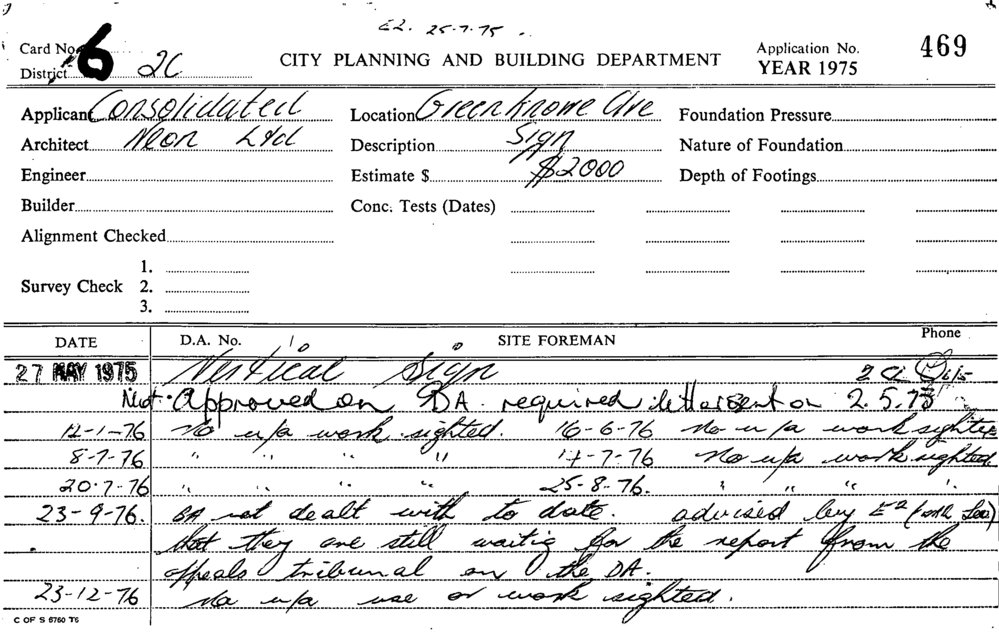 E2. 25-7-75
Card No. 6
District 2C
CITY PLANNING AND BUILDING DEPARTMENT
Application No. 469
YEAR 1975
Applicant Consolidated
Location Greenknowe Ave
Foundation Pressure
Architect Neon Ltd
Description Sign
Nature of Foundation
Engineer
Estimate $ $2000
Depth of Footings
Builder
Conc. Tests (Dates)
Alignment Checked
Survey Check 1.
2.
3.
DATE D.A. No. SITE FOREMAN Phone
27 MAY 1975 Vertical Sign
Not Approved on DA. required letter sent on 2.5.75
12-1-76 No u/a work sighted. 16-6-76 No u/a work sighted
8-7-76 " " " " 14-7-76 No u/a work sighted.
20-7-76 " " " " 25-8-76. " " " "
23-9-76. BA not dealt with to date. advised by E2
that they are still waiting for the report from the
appeals tribunal on the DA.
23-12-76 No u/a use or work sighted.
C OF S 6760 T6